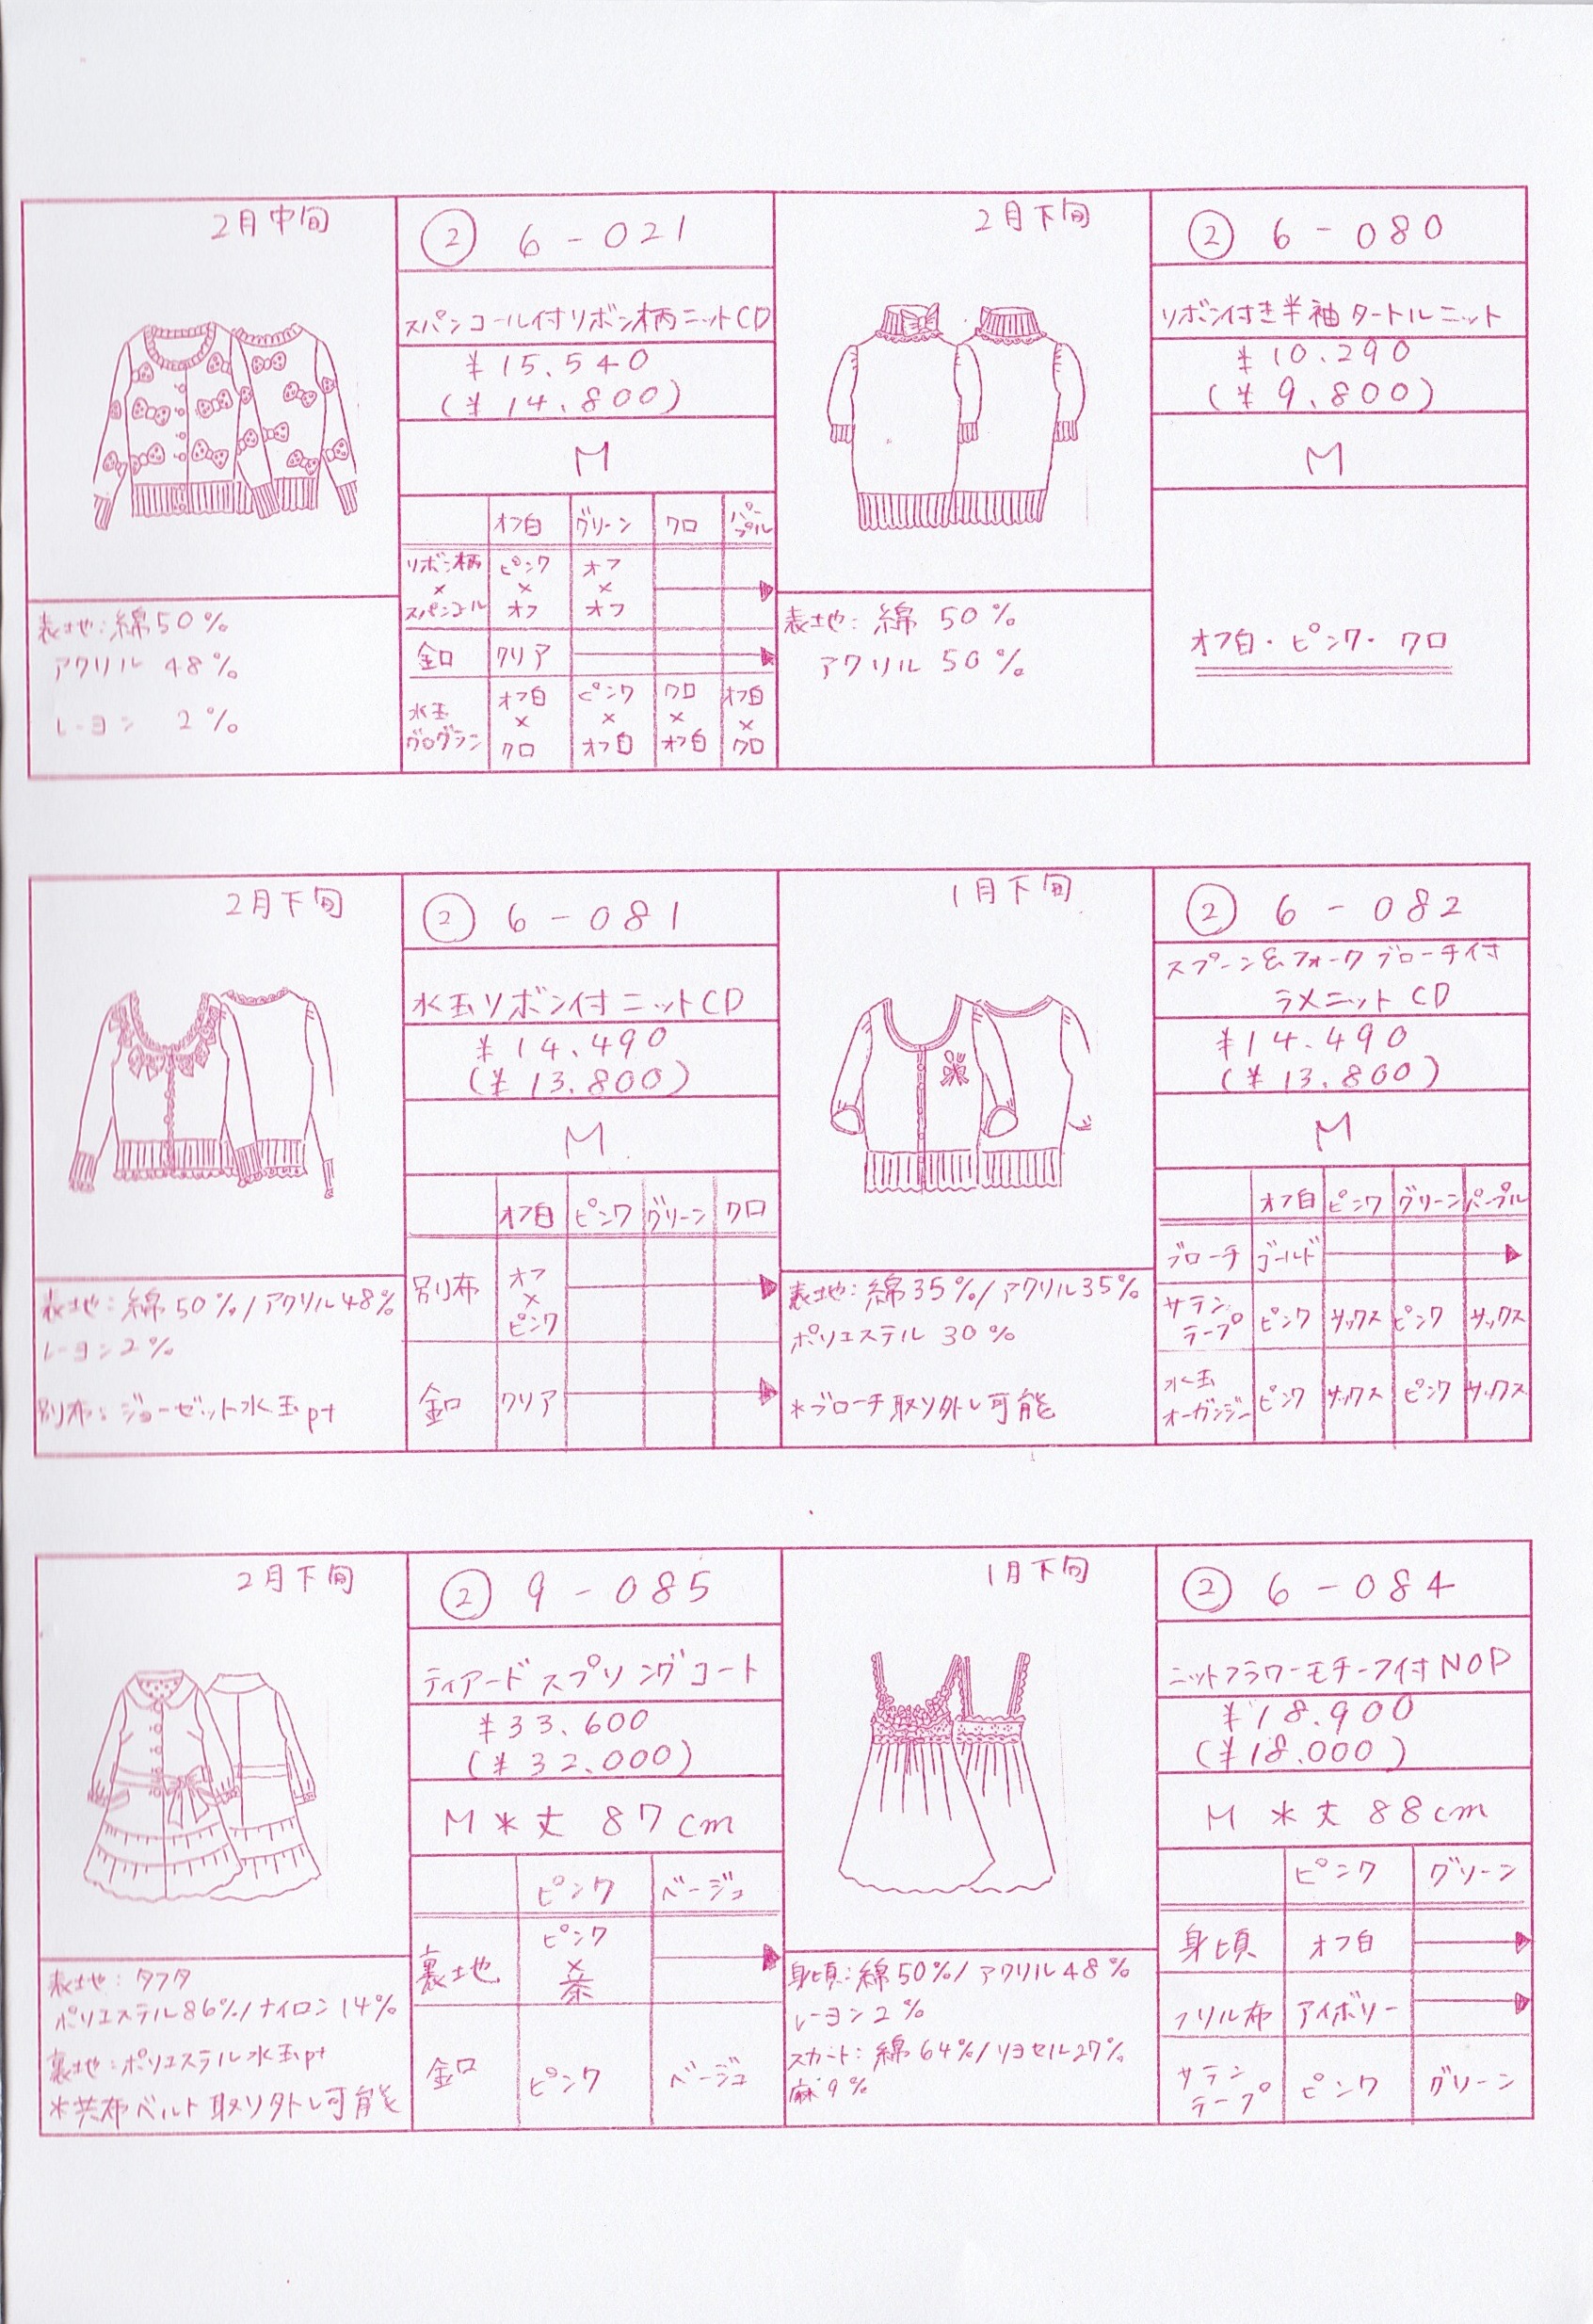 2月中旬
② 6-021
スパンコール付リボン柄ニットCD
¥15.540
(¥14.800)
M
オフ白 グリーン クロ パープル
リボン柄×スパンコール ピンク×オフ オフ×オフ
釦 クリア
水玉グログラン オフ白×クロ ピンク×オフ白 クロ×オフ白 オフ白×クロ
表地:綿50%
アクリル 48%
レーヨン 2%
2月下旬
② 6-080
リボン付き半袖タートルニット
¥10.290
(¥9.800)
M
オフ白・ピンク・クロ
表地:綿 50%
アクリル 50%
2月下旬
② 6-081
水玉リボン付ニットCD
¥14.490
(¥13.800)
M
オフ白 ピンク グリーン クロ
別布 オフ×ピンク
釦 クリア
表地:綿50%/アクリル48%
レーヨン2%
別布:ジョーゼット水玉pt
1月下旬
② 6-082
スプーン&フォークブローチ付
ラメニットCD
¥14.490
(¥13.800)
M
オフ白 ピンク グリーン パープル
ブローチ ゴールド
サテンテープ ピンク サックス ピンク サックス
水玉オーガンジー ピンク サックス ピンク サックス
表地:綿35%/アクリル35%
ポリエステル 30%
*ブローチ取り外し可能
2月下旬
② 9-085
ティアードスプリングコート
¥33.600
(¥32.000)
M *丈 87cm
ピンク ベージュ
裏地 ピンク×茶
釦 ピンク ベージュ
表地:タフタ
ポリエステル86%/ナイロン14%
裏地:ポリエステル水玉pt
*共布ベルト取り外し可能
1月下旬
② 6-084
ニットフラワーモチーフ付NOP
¥18.900
(¥18.000)
M *丈 88cm
ピンク グリーン
身頃 オフ白
フリル布 アイボリー
サテンテープ ピンク グリーン
身頃:綿50%/アクリル48%
レーヨン2%
スカート:綿64%/リヨセル27%
麻9%